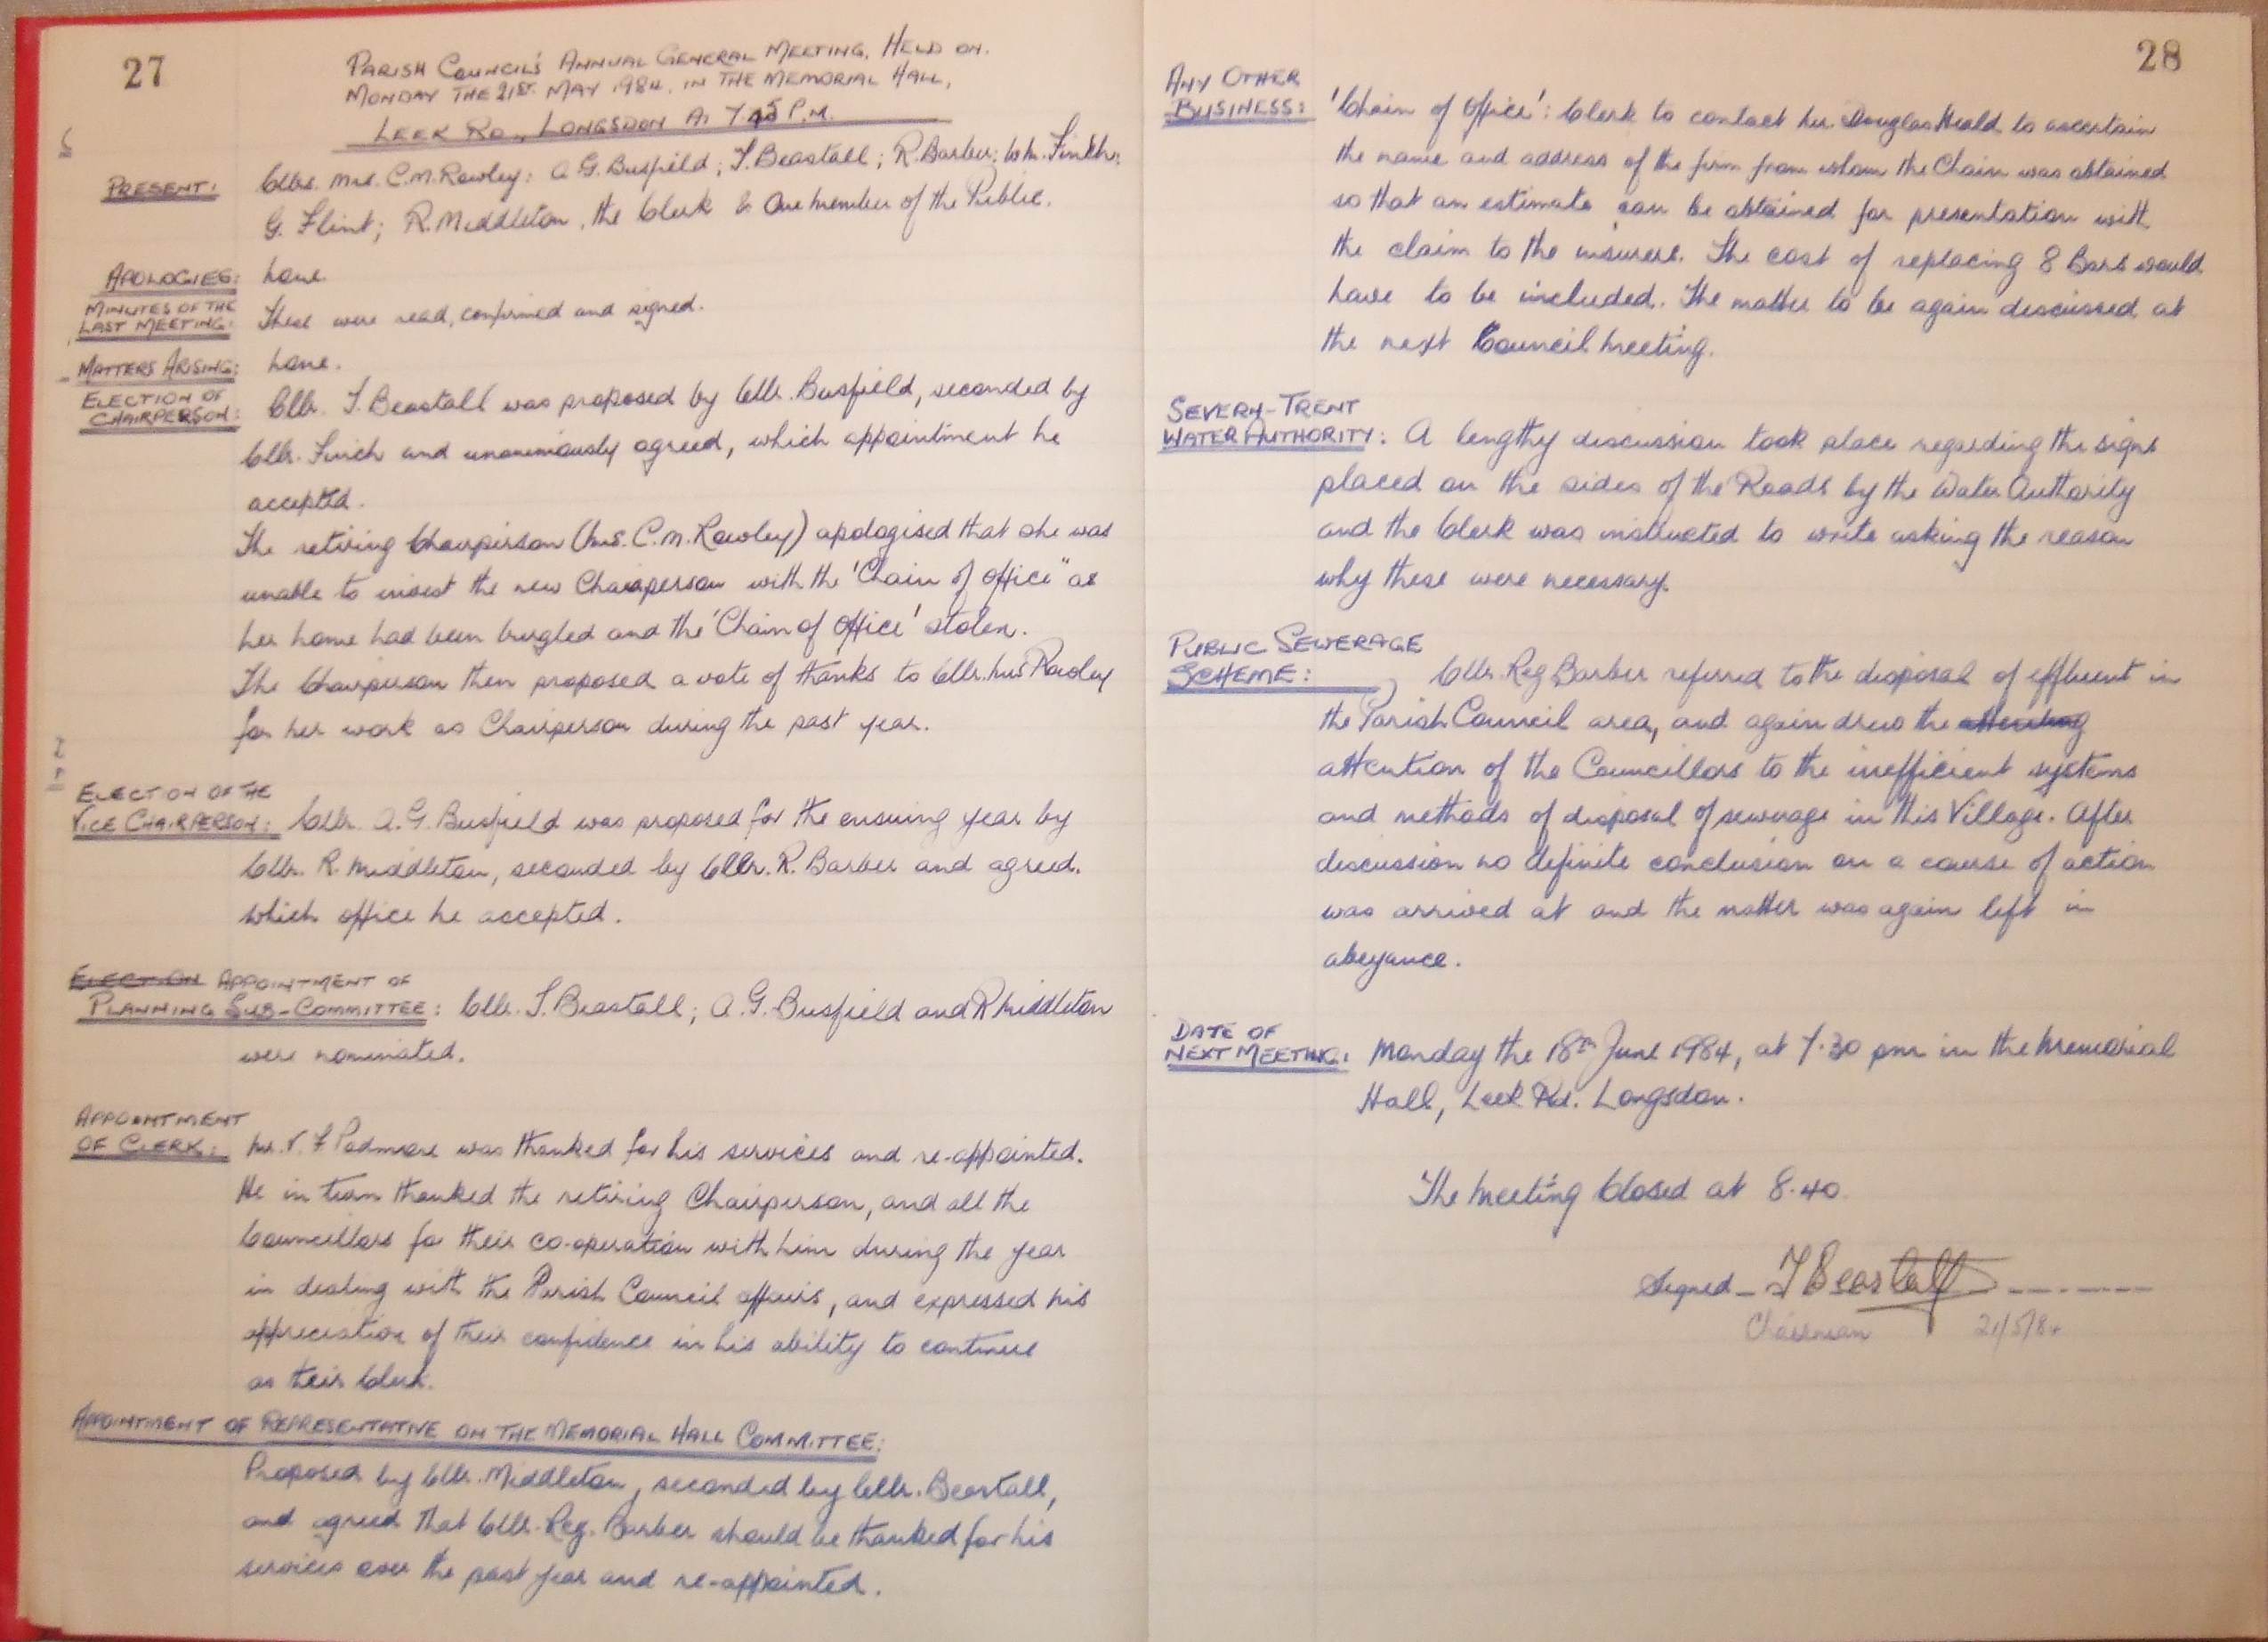 27
PARISH COUNCIL'S ANNUAL GENERAL MEETING, HELD ON.
MONDAY THE 21ST. MAY 1984. IN THE MEMORIAL HALL,
LEEK RD., LONGSDON At 7.45 P.M.
PRESENT: Cllrs. Mrs. C.M. Rowley: A.G. Busfield; T. Beastall; R. Barber; Wm. Finch;
G. Flint; R. Middleton, the Clerk & One member of the Public.
APOLOGIES: None.
MINUTES OF THE
LAST MEETING: These were read, confirmed and signed.
MATTERS ARISING: None.
ELECTION OF
CHAIRPERSON: Cllr. T. Beastall was proposed by Cllr. Busfield, seconded by
Cllr. Finch and unanimously agreed, which appointment he
accepted.
The retiring Chairperson (Mrs. C.M. Rowley) apologised that she was
unable to invest the new Chairperson with the 'Chain of Office" as
her home had been burgled and the 'Chain of Office' stolen.
The Chairperson then proposed a vote of thanks to Cllr. Mrs Rowley
for her work as Chairperson during the past year.
ELECTION OF THE
VICE CHAIRPERSON: Cllr. A.G. Busfield was proposed for the ensuing year by
Cllr. R. Middleton, seconded by Cllr. R. Barber and agreed.
Which office he accepted.
ELECTION APPOINTMENT OF
PLANNING SUB-COMMITTEE: Cllr. T. Beastall; A.G. Busfield and R Middleton
were nominated.
APPOINTMENT
OF CLERK: Mr. V. F Padmore was thanked for his services and re-appointed.
He in turn thanked the retiring Chairperson, and all the
Councillors for their co-operation with him during the year
in dealing with the Parish Council affairs, and expressed his
appreciation of their confidence in his ability to continue
as their Clerk.
APPOINTMENT OF REPRESENTATIVE ON THE MEMORIAL HALL COMMITTEE:
Proposed by Cllr. Middleton, seconded by Cllr. Beastall,
and agreed that Cllr. Reg. Barber should be thanked for his
services over the past year and re-appointed.
28
ANY OTHER
BUSINESS: 'Chain of Office': Clerk to contact Mr. Douglas Heald to ascertain
the name and address of the firm from whom the Chain was obtained
so that an estimate can be obtained for presentation with
the claim to the insurers. The cost of replacing 8 Bars would
have to be included. The matter to be again discussed at
the next Council Meeting.
SEVERN-TRENT
WATER AUTHORITY: A lengthy discussion took place regarding the signs
placed on the sides of the Roads by the Water Authority
and the Clerk was instructed to write asking the reason
why these were necessary.
PUBLIC SEWERAGE
SCHEME: Cllr. Reg Barber referred to the disposal of effluent in
the Parish Council area, and again drew the
attention of the Councillors to the inefficient systems
and methods of disposal of sewerage in this Village. After
discussion no definite conclusion on a course of action
was arrived at and the matter was again left in
abeyance.
DATE OF
NEXT MEETING: Monday the 18th June 1984, at 7.30 pm in the Memorial
Hall, Leek Rd. Longsdon.
The Meeting Closed at 8.40.
Signed - T Beastall
Chairman 21/5/84